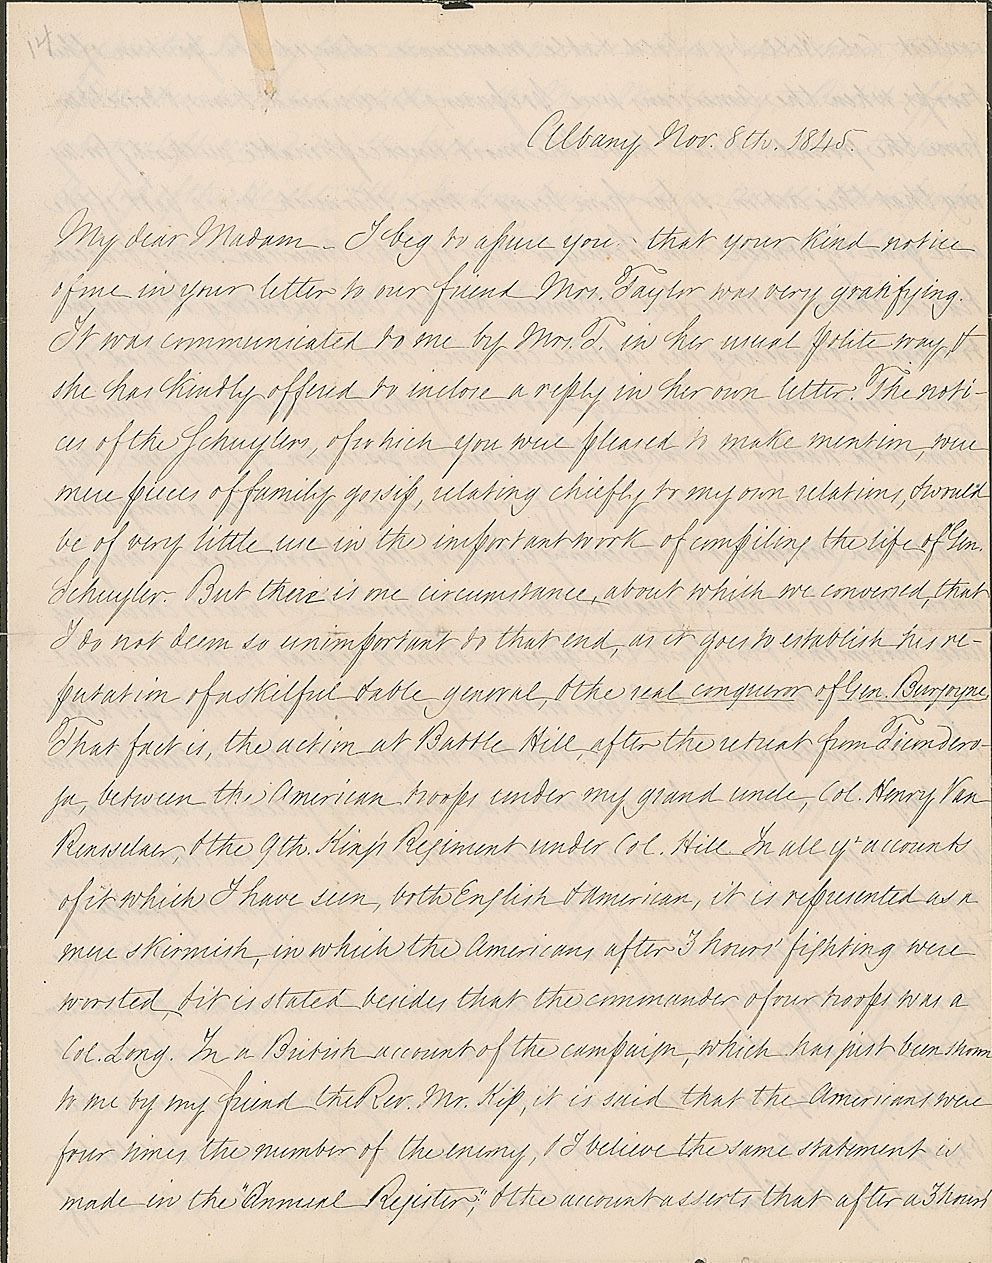 14
Albany Nov. 8th. 1845
My dear Madam - I beg to assure you that your kind notice
of me in your letter to our friend Mrs. Taylor was very gratifying.
It was communicated to me by Mrs. T. in her usual polite way, &
she has kindly offered to inclose a reply in her own letter. The noti-
ces of the Schuylers, of which you were pleased to make mention, were
mere pieces of family gossip, relating chiefly to my own relations, & would
be of very little use in the important work of compiling the life of Gen.
Schuyler. But there is one circumstance, about which we conversed, that
I do not deem so unimportant to that end, as it goes to establish his re-
putation of a skilful & able general, & the real conqueror of Gen. Burgoyne.
That fact is, the action at Battle Hill, after the retreat from Ticondero-
ga, between the American troops under my grand uncle, Col. Henry Van
Rensselaer, & the 9th. King's Regiment under Col. Hill. In all ye accounts
of it which I have seen, both English & American, it is represented as a
mere skirmish, in which the Americans after 3 hours' fighting were
worsted, & it is stated besides that the commander of our troops was a
Col. Long. In a British account of the campaign, which has just been shown
to me by my friend the Rev. Mr. Kip, it is said that the Americans were
four times the number of the enemy, & I believe the same statement is
made in the "Annual Register," & the account asserts that after a 3 hours'